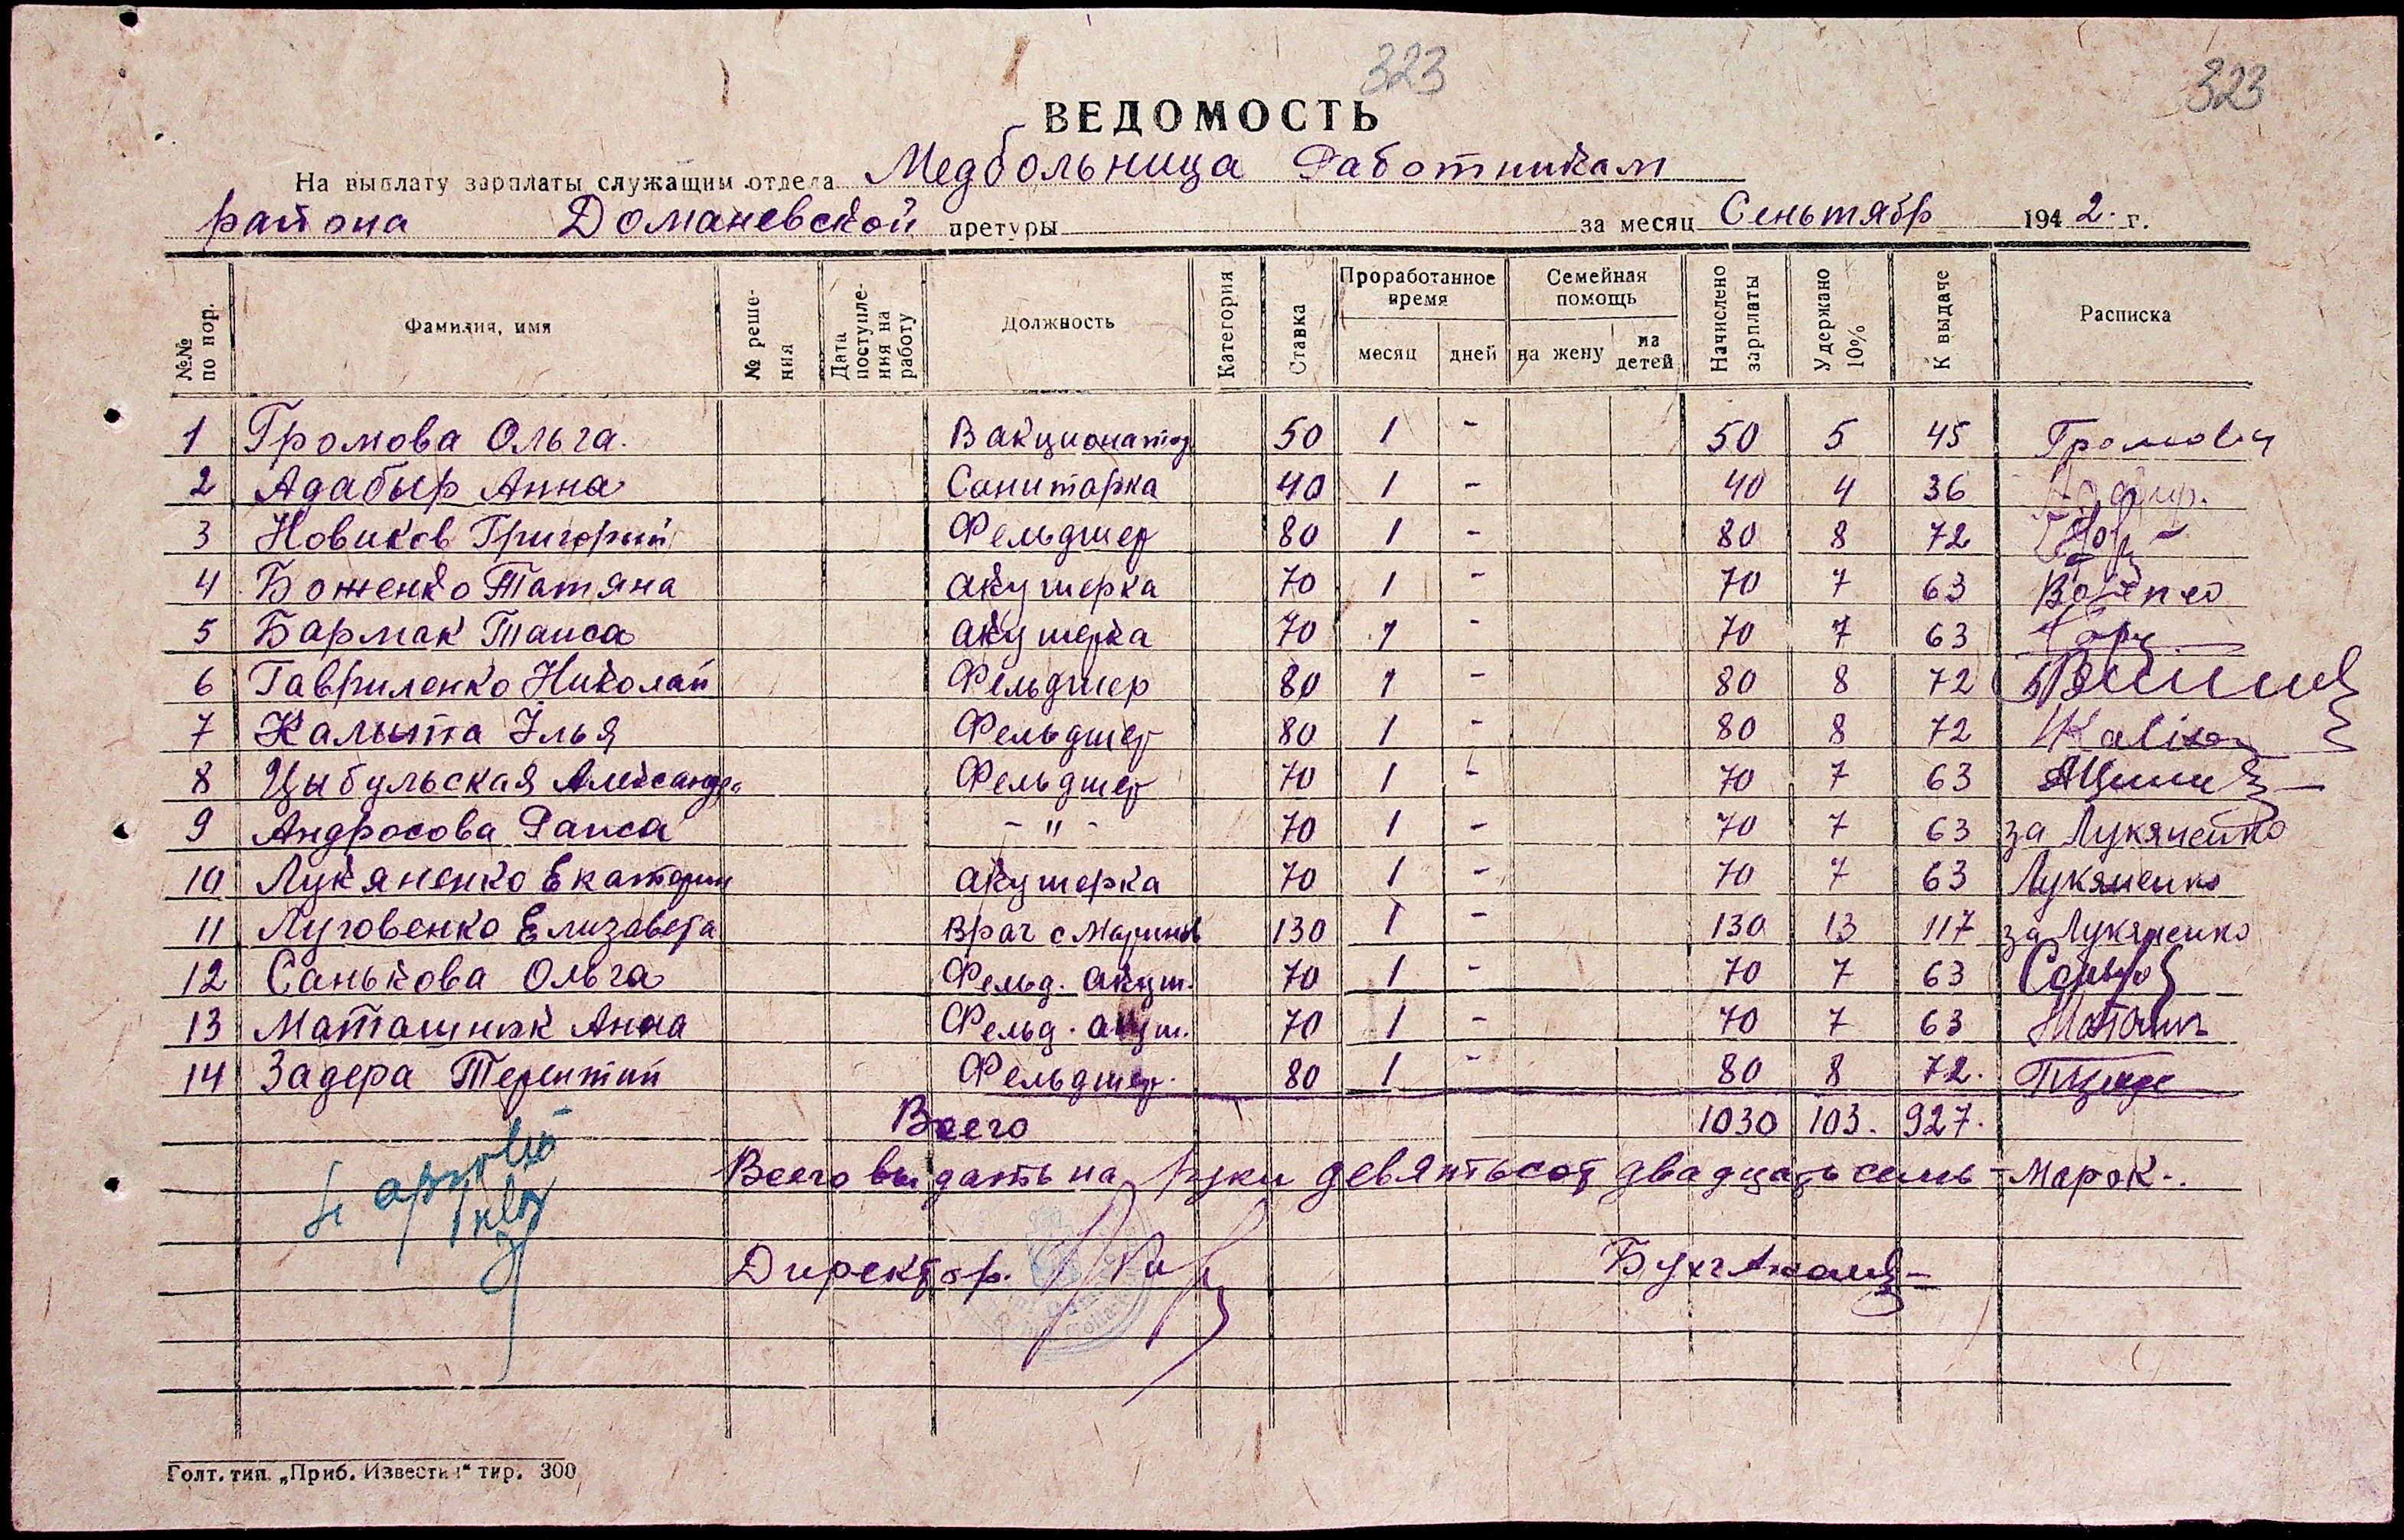 323 323
ВЕДОМОСТЬ
На выплату зарплаты служащим отдела Медбольница Работникам
района Доманевской претуры за месяц Сеньтябр 1942. г.
№№ по пор. Фамилия, имя № реше-ния Дата поступле-ния на работу Должность Категория Ставка Проработанное время месяц дней Семейная помощь на жену на детей Начислено зарплаты Удержано 10% К выдаче Расписка
1 Громова Ольга. Вакционатор 50 1 - 50 5 45 Громова
2 Адабыр Анна Санитарка 40 1 - 40 4 36
3 Новиков Григорий Фельдшер 80 1 - 80 8 72
4 Боженко Татяна акушерка 70 1 - 70 7 63
5 Бармак Таиса акушерка 70 1 - 70 7 63
6 Гавриленко Николай Фельдшер 80 1 - 80 8 72
7 Калыта Илья Фельдшер 80 1 - 80 8 72
8 Цыбульская Александра Фельдшер 70 1 - 70 7 63
9 Андросова Раиса - " - 70 1 - 70 7 63 за Лукяненко
10 Лукяненко Екатерин акушерка 70 1 - 70 7 63 Лукяненко
11 Луговенко Елизавета Врач с Маринов 130 1 - 130 13 117 за Лукяненко
12 Санькова Ольга Фельд. акуш. 70 1 - 70 7 63
13 Маташнюк Анна Фельд. акуш. 70 1 - 70 7 63
14 Задера Терентий Фельдшер. 80 1 - 80 8 72.
Всего 1030 103. 927.
Всего выдать на руки девятьсот двадцать семь - марок.
Se aprobă
Директор. Бухг
Голт. тип. „Приб. Известия“ тир. 300